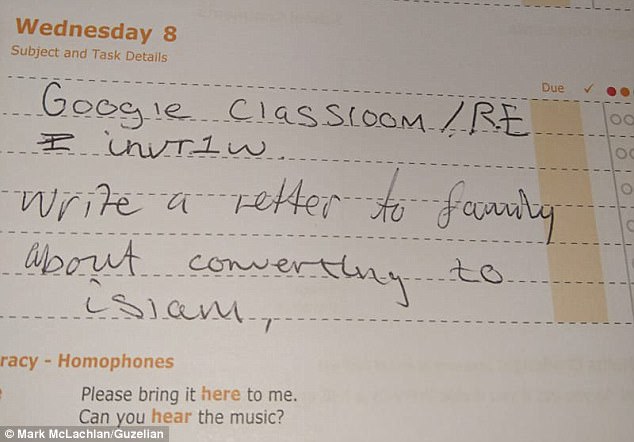 Wednesday 8
Subject and Task Details
Due ✓
Google Classroom / RE
invr1w.
Write a letter to family
about converting to
islam,
racy - Homophones
Please bring it here to me.
Can you hear the music?
© Mark McLachlan/Guzelian